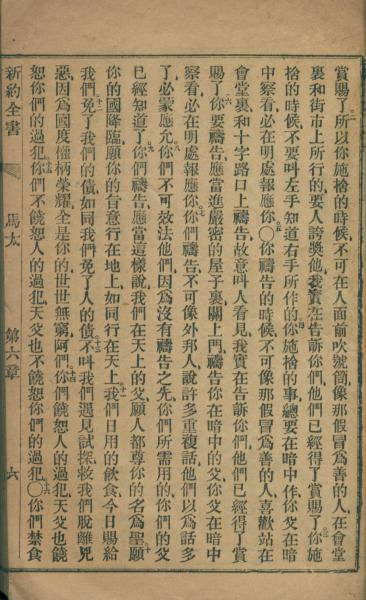 賞賜了所以你施捨的時候不可在人面前吹號筒像那假冒爲善的人在會堂
裏和街市上所行的要人誇奬他我實在告訴你們他們已經得了賞賜了你施
捨的時候不要叫左手知道右手所作的你施捨的事總要在暗中作你父在暗
中察看必在明處報應你〇你禱告的時候不可像那假冒爲善的人喜歡站在
會堂裏和十字路口上禱告故意叫人看見我實在告訴你們他們已經得了賞
賜了你要禱告應當進嚴密的屋子裏關上門禱告你在暗中的父你父在暗中
察看必在明處報應你你們禱告不可像外邦人說許多重複話他們以爲話多
了必蒙應允你們不可效法他們因爲沒有禱告之先你們所需用的你們的父
已經知道了你們禱告應當這樣說我們在天上的父願人都尊你的名爲聖願
你的國降臨願你的旨意行在地上如同行在天上我們日用的飲食今日賜給
我們免了我們的債如同我們免了人的債不叫我們遇見試探救我們脫離兇
惡因爲國度權柄榮耀全是你的世世無窮阿們你們饒恕人的過犯天父也饒
恕你們的過犯你們不饒恕人的過犯天父也不饒恕你們的過犯〇你們禁食
新約全書 馬太 第六章 六